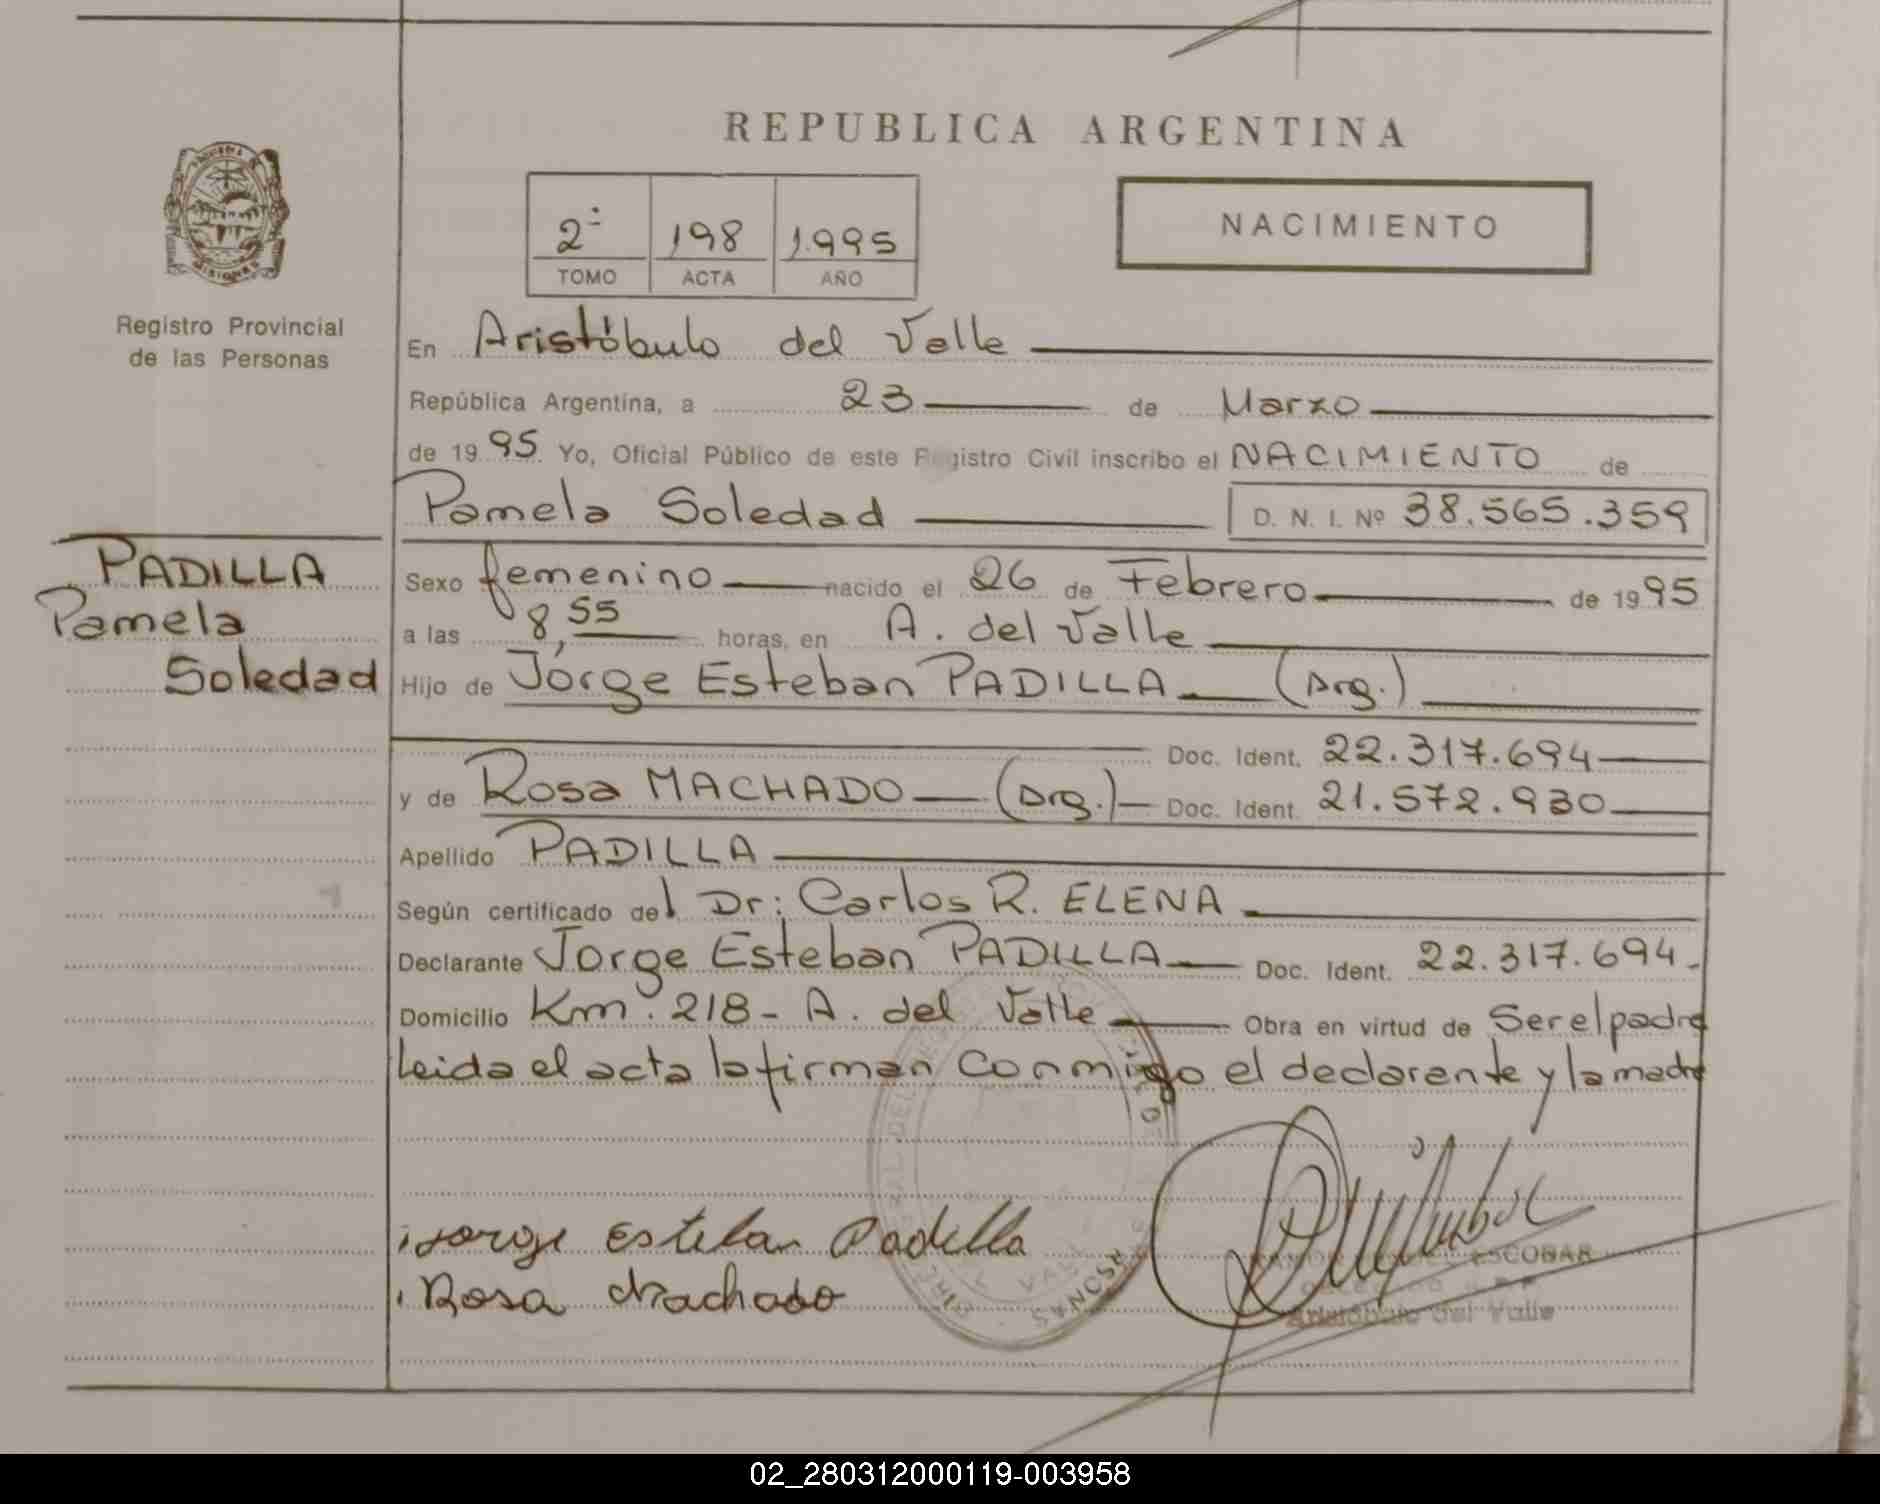 REPUBLICA ARGENTINA
PROVINCIA DE
MISIONES
Registro Provincial
de las Personas
2º 198 1.995
TOMO ACTA AÑO
NACIMIENTO
En Aristóbulo del Valle
República Argentina, a 23 de Marzo
de 19 95 Yo, Oficial Público de este Registro Civil inscribo el NACIMIENTO de
Pamela Soledad D. N. I. Nº 38.565.359
PADILLA
Pamela
Soledad
Sexo femenino nacido el 26 de Febrero de 19 95
a las 8,55 horas, en A. del Valle
Hijo de Jorge Esteban PADILLA (Arg.)
Doc. Ident. 22.317.694
y de Rosa MACHADO (Arg.) Doc. Ident. 21.572.930
Apellido PADILLA
Según certificado del Dr: Carlos R. ELENA
Declarante Jorge Esteban PADILLA Doc. Ident. 22.317.694
Domicilio Km. 218 - A. del Valle Obra en virtud de Ser el padre
Leida el acta la firman conmigo el declarente y la madre
Jorge Esteban Padilla
Rosa Machado
ESCOBAR
Aristóbulo del Valle
02_280312000119-003958